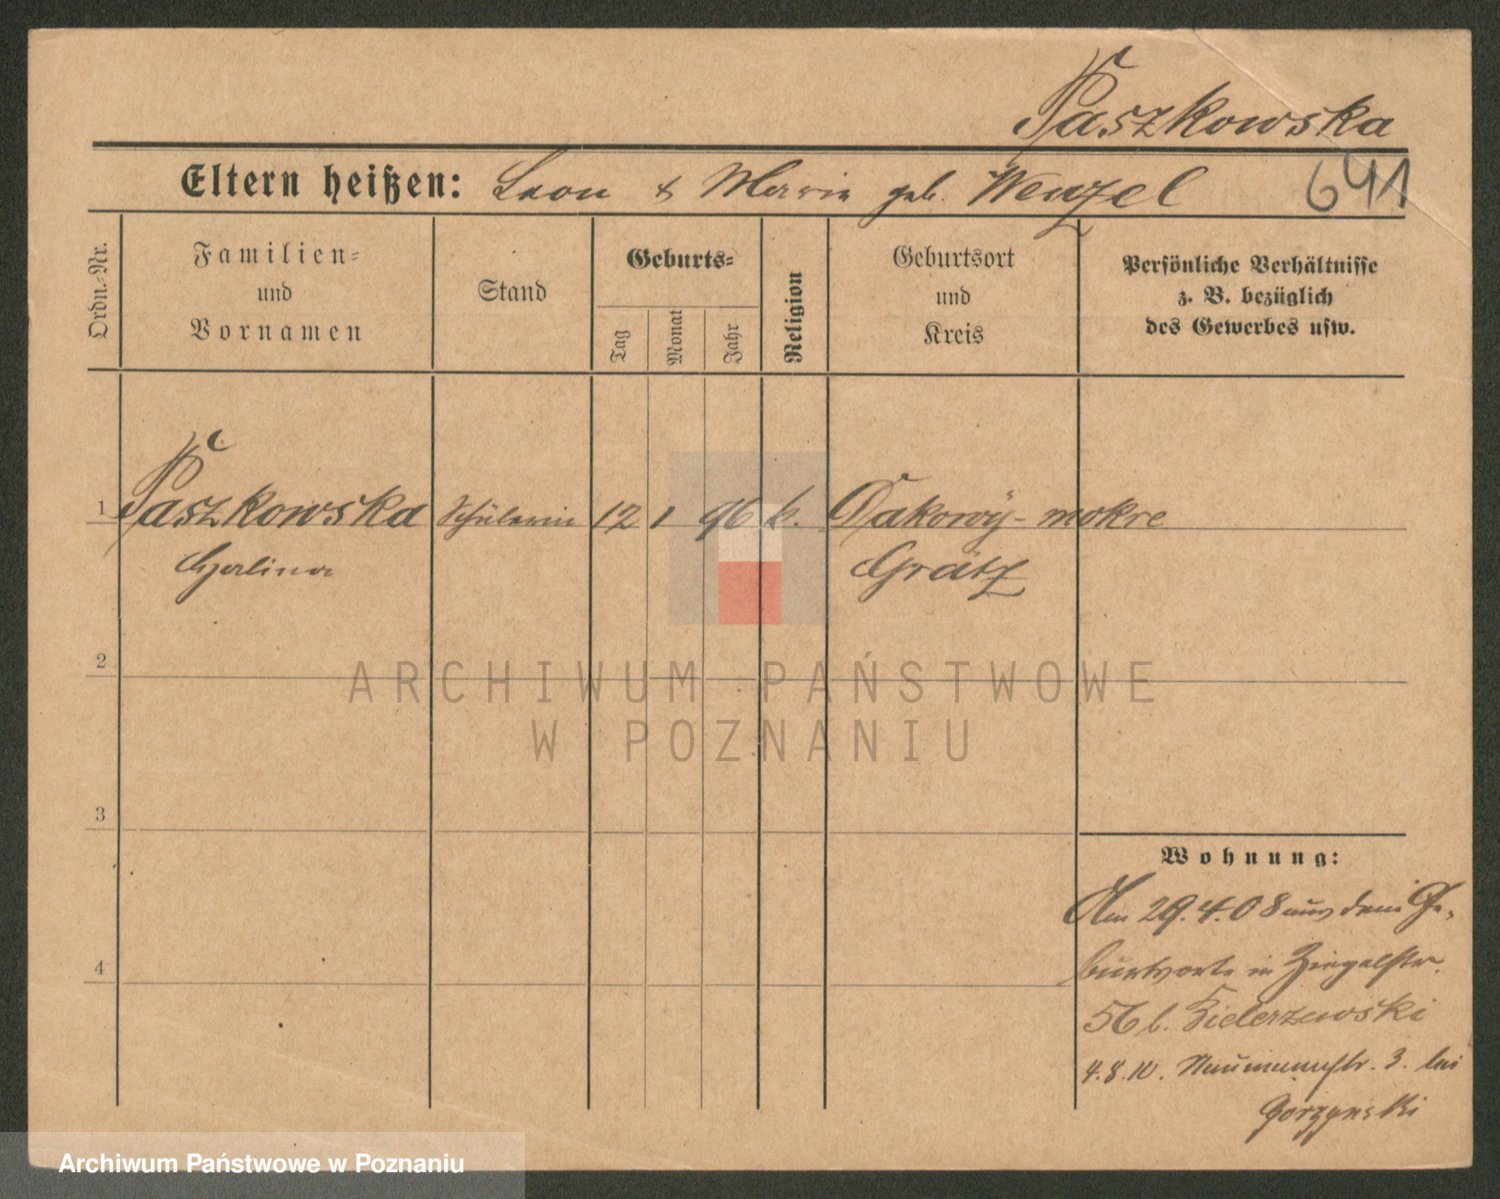 Paszkowska
Eltern heißen: Leon & Maria geb. Wenzel 641
Ordn.-Nr.
Familien-
und
Vornamen
Stand
Geburts-
Tag
Monat
Jahr
Religion
Geburtsort
und
Kreis
Persönliche Verhältnisse
z. B. bezüglich
des Gewerbes usw.
1 Paszkowska Schülerin 12 1 96 k. Dakowy-mokre
Grätz
2
ARCHIWUM PAŃSTWOWE
W POZNANIU
3
Wohnung:
Am 29.4.08 aus dem Ge-
burtsorte in Ziegelstr.
4
56 b.
4.8.10. Naumannstr. 3. bei
Gorzynski
Archiwum Państwowe w Poznaniu